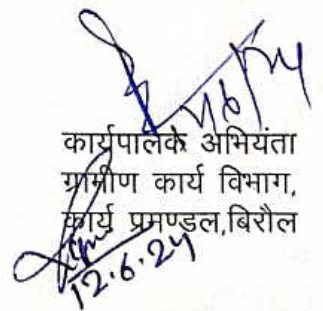 कार्यपालक अभियंता
ग्रामीण कार्य विभाग,
कार्य प्रमण्डल,बिरौल
12.6.24